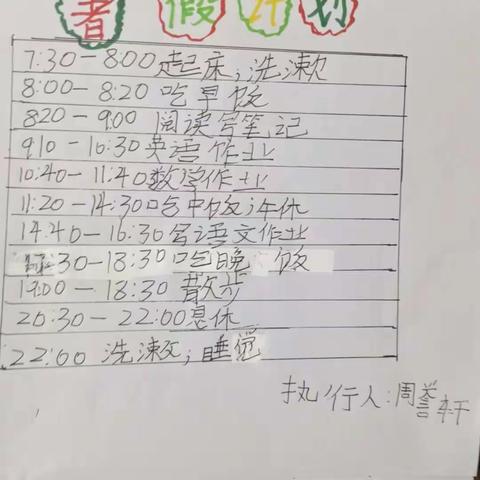 暑假计划
7:30-8:00起床,洗漱
8:00-8:20 吃早饭
820-9:00 阅读写笔记
910-10:30英语作业
10:40-11:40数学作业
11:20-14:30吃中饭,午休
14:40-16:30写语文作业
30-18:30吃晚饭
19:00-18:30散步
20:30-22:00息休
22:00 洗漱,睡觉
执行人:周誉轩